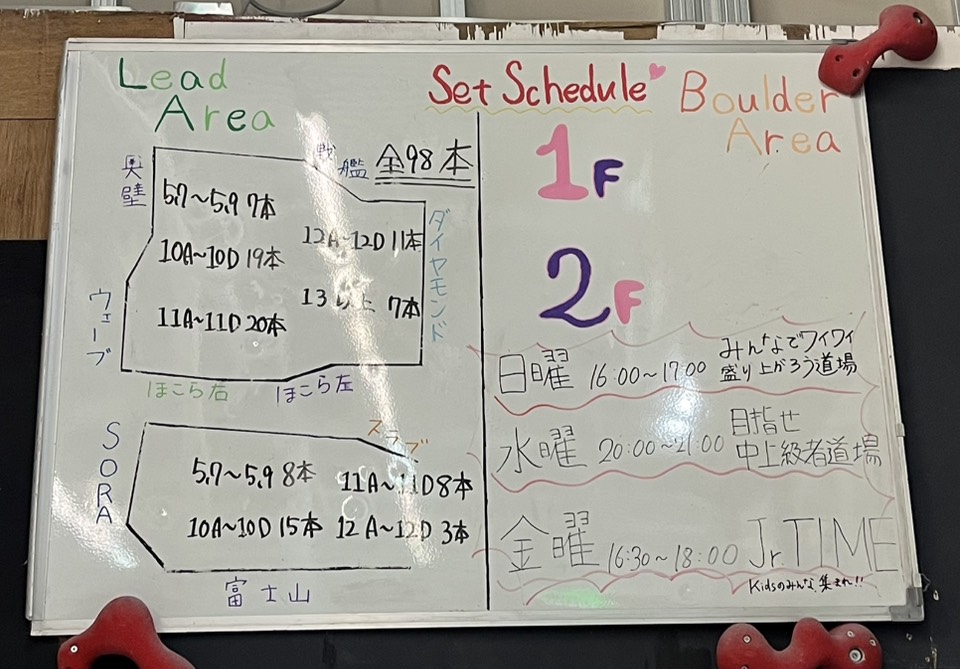 Set Schedule
Lead
Area
全98本
奥壁
戦艦
ダイヤモンド
ウェーブ
5.7〜5.9 7本
10A〜10D 19本
11A〜11D 20本
12A〜12D 11本
13以上 7本
ほこら右
ほこら左
SORA
スラブ
5.7〜5.9 8本
10A〜10D 15本
11A〜11D 8本
12A〜12D 3本
富士山
Boulder
Area
1F
2F
日曜 16:00〜17:00 みんなでワイワイ
盛り上がろう道場
水曜 20:00〜21:00 目指せ
中上級者道場
金曜 16:30〜18:00 Jr.TIME
Kidsのみんな集まれ!!